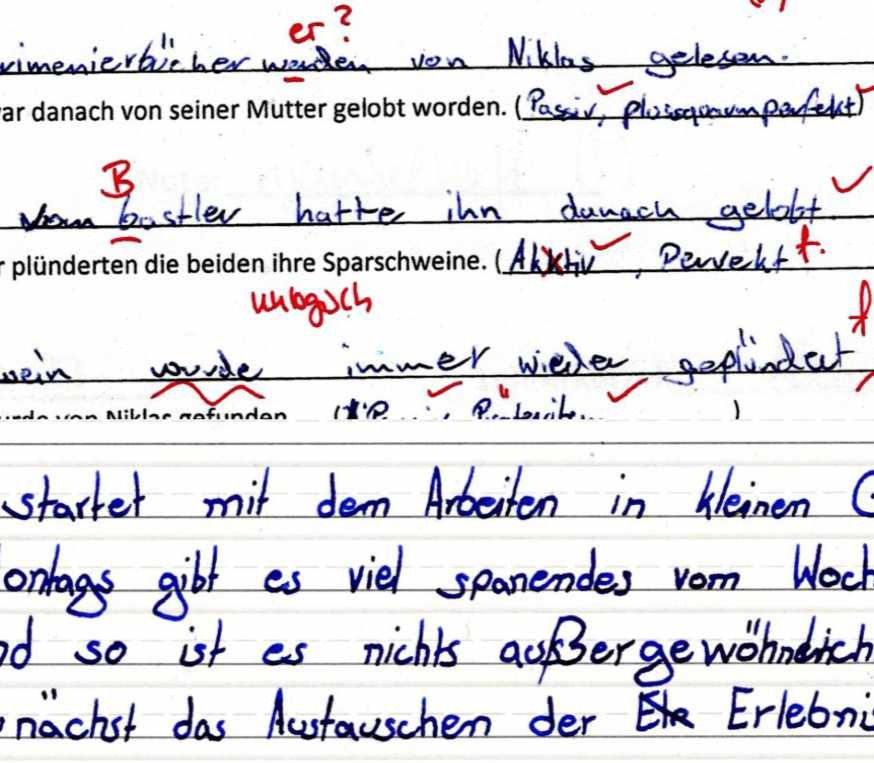 er?
rimenierbücher werden von Niklas gelesen.
ar danach von seiner Mutter gelobt worden. (Passiv, plusquamperfekt)
B
Vom bastler hatte ihn danach gelobt.
r plünderten die beiden ihre Sparschweine. (Aktiv, Pervekt f.
unlogisch
wein wurde immer wieder geplündert f
urde von Niklas gefunden. ( )
startet mit dem Arbeiten in kleinen G
ontags gibt es viel spanendes vom Woch
nd so ist es nichts außergewöhnlich
nächst das Austauschen der Erlebnis